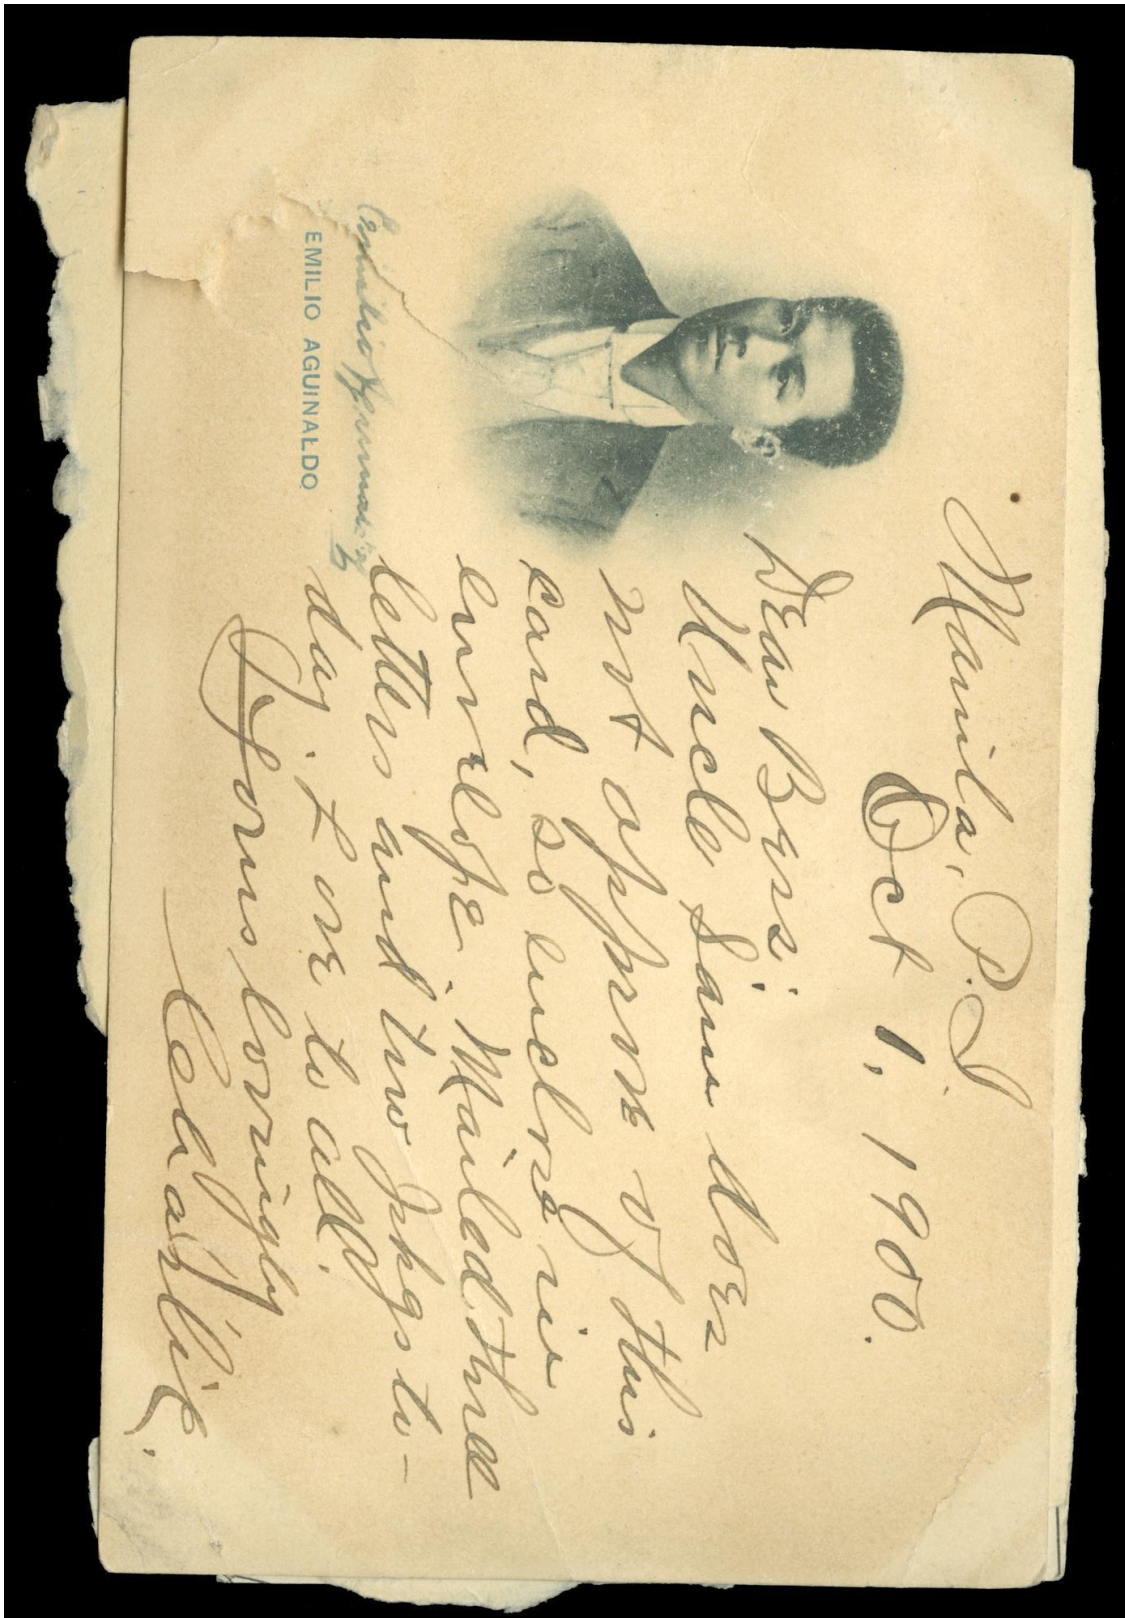 Manila, P.I.
Oct 1, 1900.
Dear Boys:
Uncle Sam does
not approve of this
card, so enclose in
envelope. Mailed three
letters and two pkgs to-
day. Love to all.
Yours lovingly
EMILIO AGUINALDO